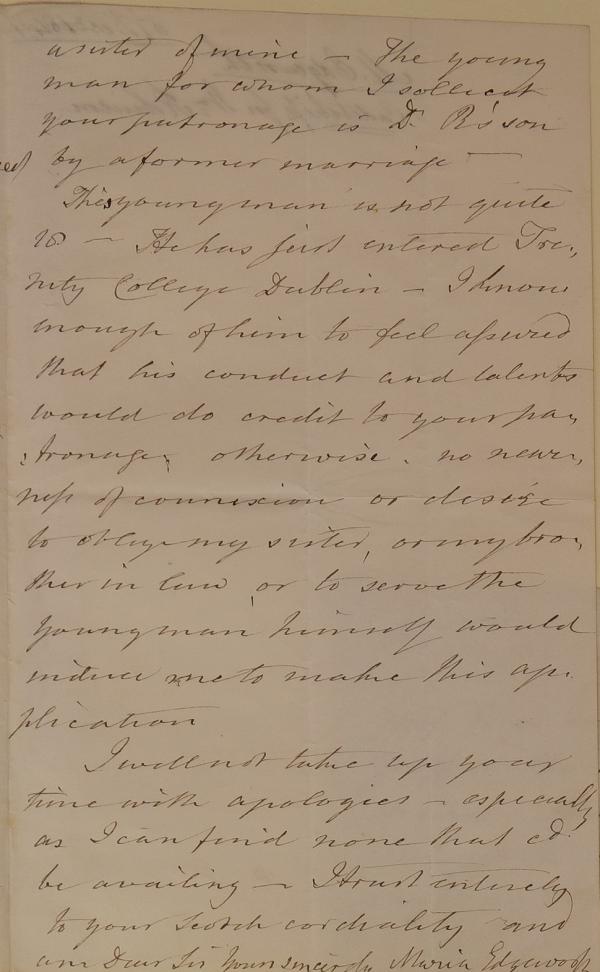 a sister of mine – The young
man for whom I sollicit
your patronage is Dr. R's son
by a former marriage –
This young man is not quite
18 – He has just entered Tri-
nity College Dublin – I know
enough of him to feel assured
that his conduct and talents
would do credit to your pa-
:tronage; otherwise. no near-
ness of connexion or desire
to oblige my sister, or my bro-
ther in law, or to serve the
young man himself would
induce me to make this ap-
plication
I will not take up your
time with apologies – especially
as I can find none that cd.
be availing – I trust entirely
to your Scotch cordiality and
am Dear Sir Yours sincerely Maria Edgeworth